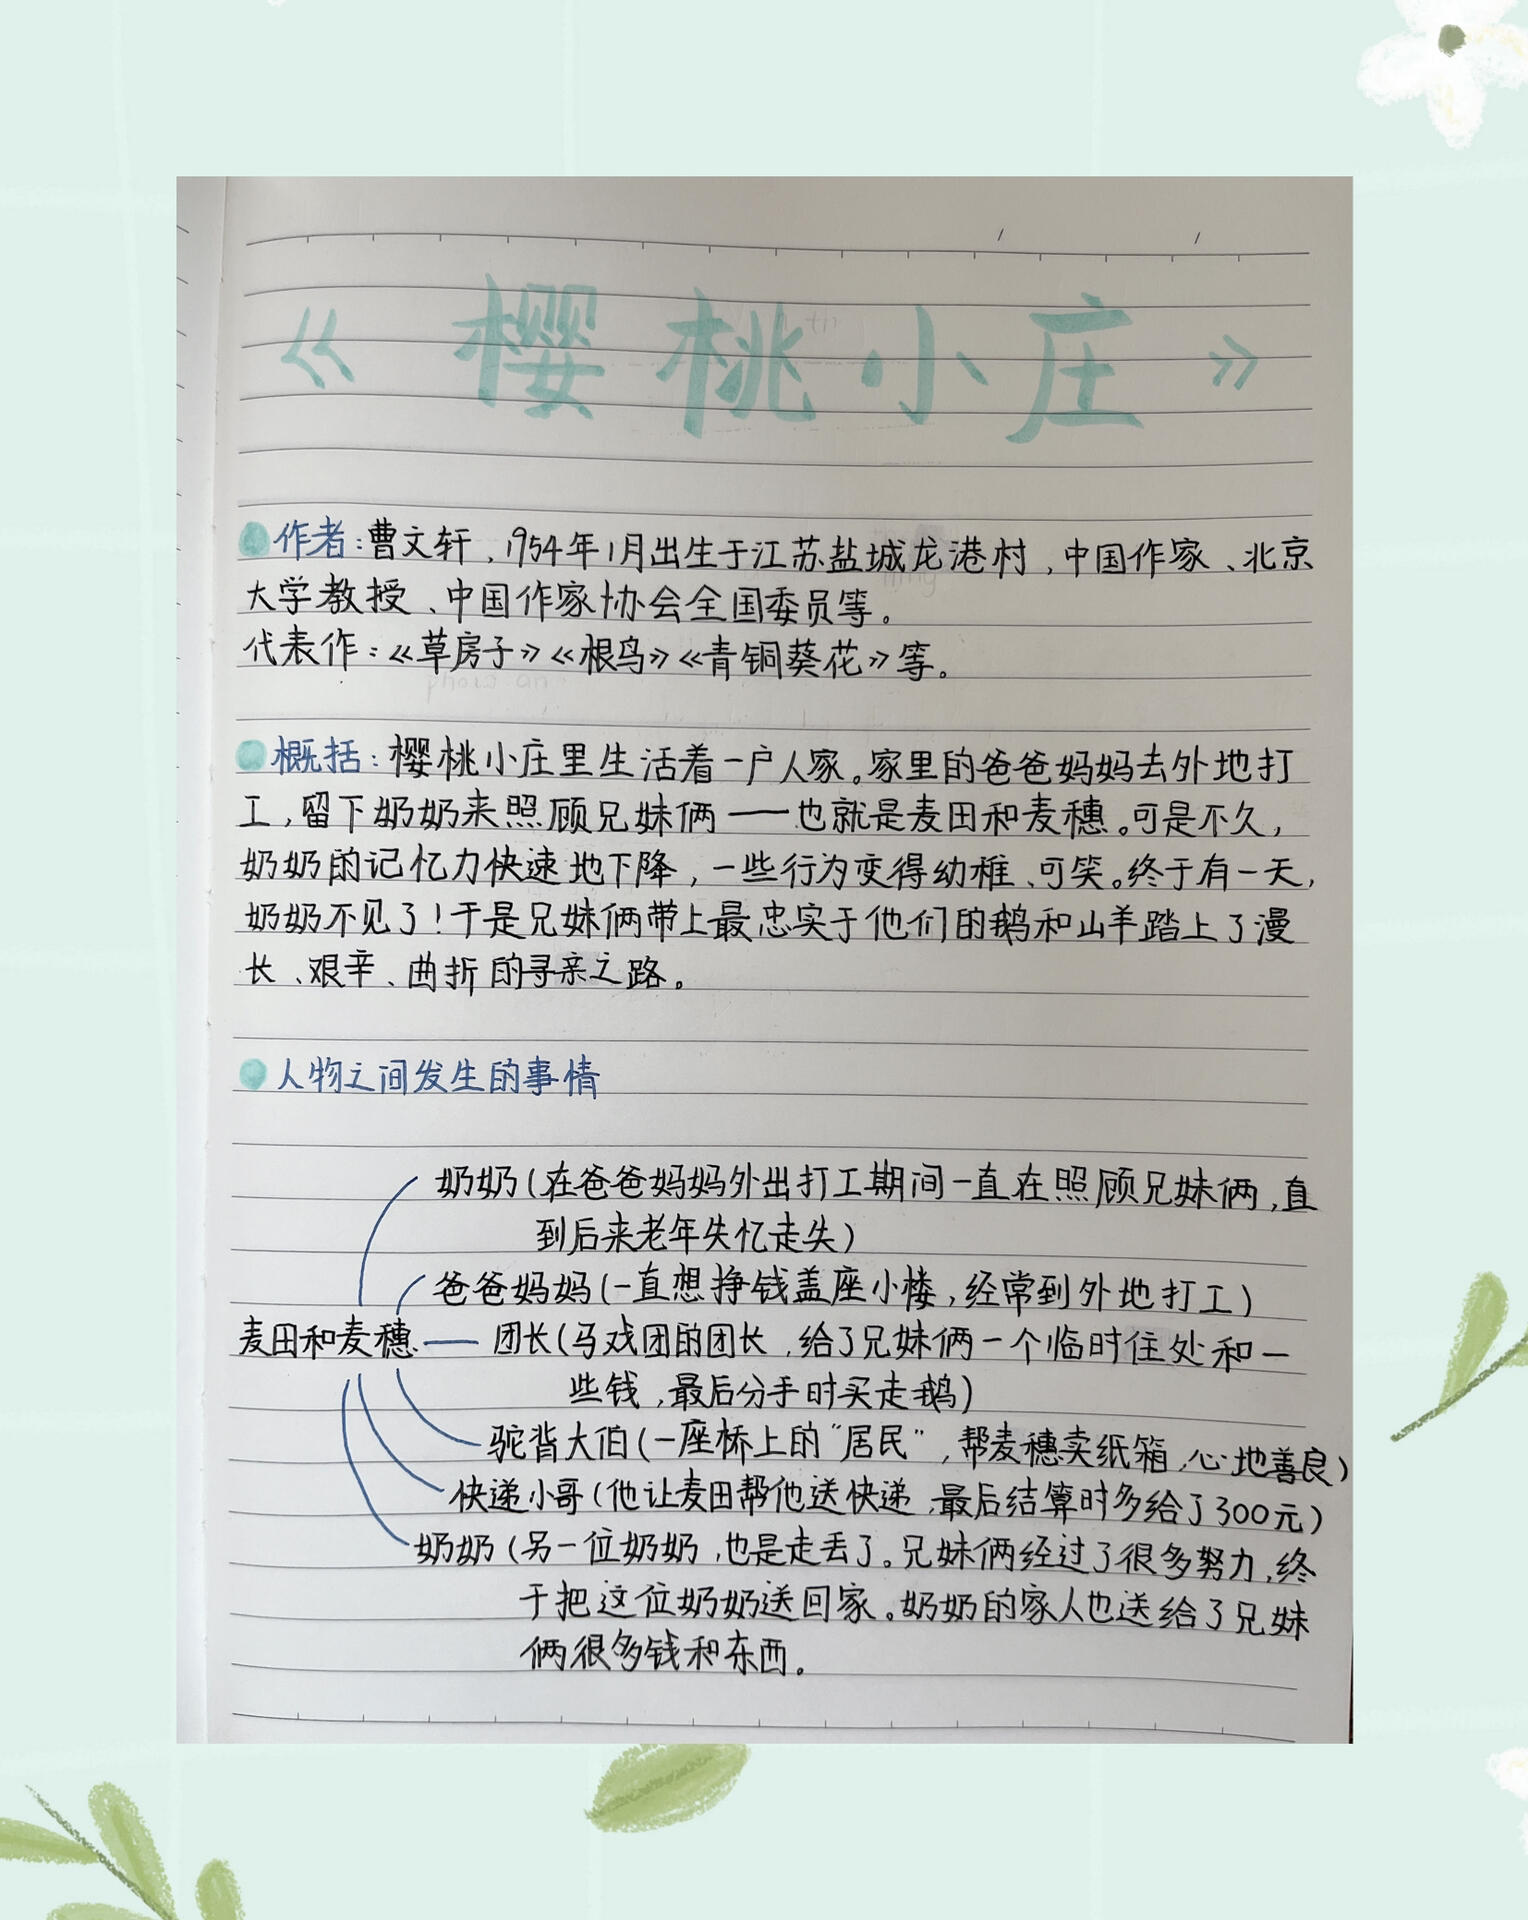 《樱桃小庄》
作者:曹文轩,1954年1月出生于江苏盐城龙港村,中国作家、北京
大学教授、中国作家协会全国委员等。
代表作:《草房子》《根鸟》《青铜葵花》等。
概括:樱桃小庄里生活着一户人家。家里的爸爸妈妈去外地打
工,留下奶奶来照顾兄妹俩——也就是麦田和麦穗。可是不久,
奶奶的记忆力快速地下降,一些行为变得幼稚、可笑。终于有一天,
奶奶不见了!于是兄妹俩带上最忠实于他们的鹅和山羊踏上了漫
长、艰辛、曲折的寻亲之路。
人物之间发生的事情
奶奶(在爸爸妈妈外出打工期间一直在照顾兄妹俩,直
到后来老年失忆走失)
爸爸妈妈(一直想挣钱盖座小楼,经常到外地打工)
麦田和麦穗——团长(马戏团的团长,给了兄妹俩一个临时住处和一
些钱,最后分手时买走鹅)
驼背大伯(一座桥上的"居民",帮麦穗卖纸箱,心地善良)
快递小哥(他让麦田帮他送快递,最后结算时多给了300元)
奶奶(另一位奶奶,也是走丢了。兄妹俩经过了很多努力,终
于把这位奶奶送回家。奶奶的家人也送给了兄妹
俩很多钱和东西。